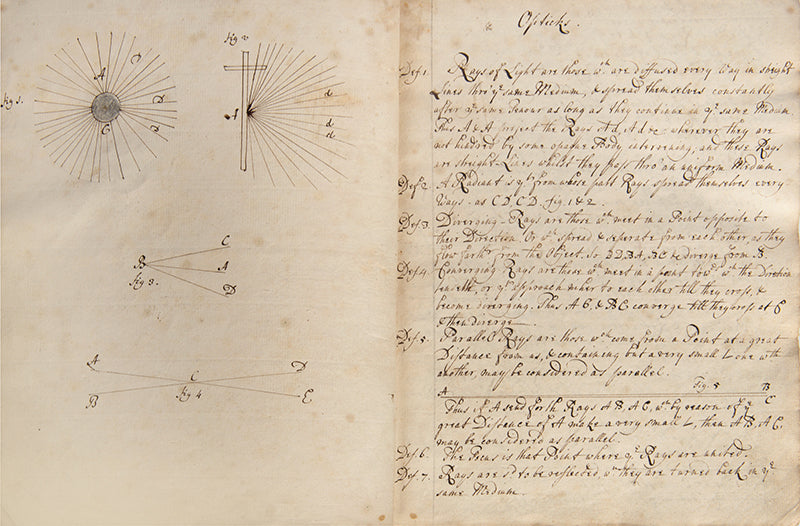 fig 1.
A
D
D
D
C
fig 2
A
d
d
d
B
C
A
D
fig 3.
A
B
C
D
E
fig 4
Opticks.
Def 1. Rays of Light are those wch. are diffused every Way in streight
Lines thro' ye. same Medium, & spread themselves constantly
after ye. same Tenour as long as they continue in ye. same Medium.
Thus A & A project the Rays Ad, Ad &c wherever they are
not hindred by some opaque Body intervening, and these Rays
are streight Lines whilst they pass thro' an uniform Medium.
Def. 2. A Radiant is yt. from whose part Rays spread themselves every
Ways. as C D, C D. fig. 1 & 2.
Def 3. Diverging Rays are those wch. meet in a Point opposite to
their Direction. Or wch. spread & seperate from each other, as they
flow farthr. from the Object. So BD, BA, BC &c diverge from B.
Def 4. Converging Rays are those wch. meet in a point wch. the Direction
or yt. approach nigher to each other till they cross, &
become diverging. Thus A C, & B C converge till they cross at C
& then diverge
Def. 5. Parallel Rays are those wch. come from a Point at a great
Distance from us, & containing but a very small L one wth
another, may be considered as parallel.
A Fig. 5 B
C
Thus if A send forth Rays A B, A C, wch. by reason of ye.
great Distance of A make a very small L, then A B, A C,
may be considered as parallel.
Def 6. The Focus is that Point where ye. Rays are united.
Def. 7. Rays are sd. to be reflected, wn. they are turned back in ye.
same Medium.